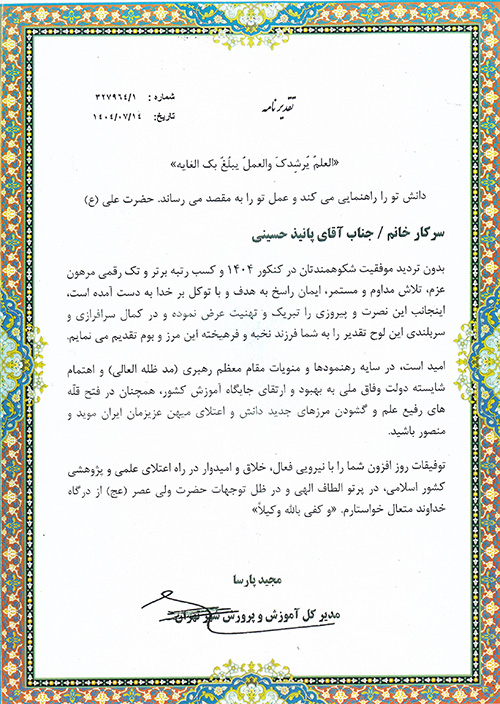 تقدیرنامه
شماره : ۳۲۷۹۶٤/۱
تاریخ: ۱٤۰٤/۰۷/۱٤
«العلمُ یُرشِدکَ والعملُ یبلّغُ بک الغایه»
دانش تو را راهنمایی می کند و عمل تو را به مقصد می رساند. حضرت علی (ع)
سرکار خانم / جناب آقای پانیذ حسینی
بدون تردید موفقیت شکوهمندتان در کنکور ۱۴۰۴ و کسب رتبه برتر و تک رقمی مرهون
عزم، تلاش مداوم و مستمر، ایمان راسخ به هدف و با توکل بر خدا به دست آمده است،
اینجانب این نصرت و پیروزی را تبریک و تهنیت عرض نموده و در کمال سرافرازی و
سربلندی این لوح تقدیر را به شما فرزند نخبه و فرهیخته این مرز و بوم تقدیم می نمایم.
امید است، در سایه رهنمودها و منویات مقام معظم رهبری (مد ظله العالی) و اهتمام
شایسته دولت وفاق ملی به بهبود و ارتقای جایگاه آموزش کشور، همچنان در فتح قلّه
های رفیع علم و گشودن مرزهای جدید دانش و اعتلای میهن عزیزمان ایران موید و
منصور باشید.
توفیقات روز افزون شما را با نیرویی فعال، خلاق و امیدوار در راه اعتلای علمی و پژوهشی
کشور اسلامی، در پرتو الطاف الهی و در ظل توجهات حضرت ولی عصر (عج) از درگاه
خداوند متعال خواستارم. «و کفی بالله وکیلاً»
مجید پارسا
مدیر کل آموزش و پرورش شهر تهران